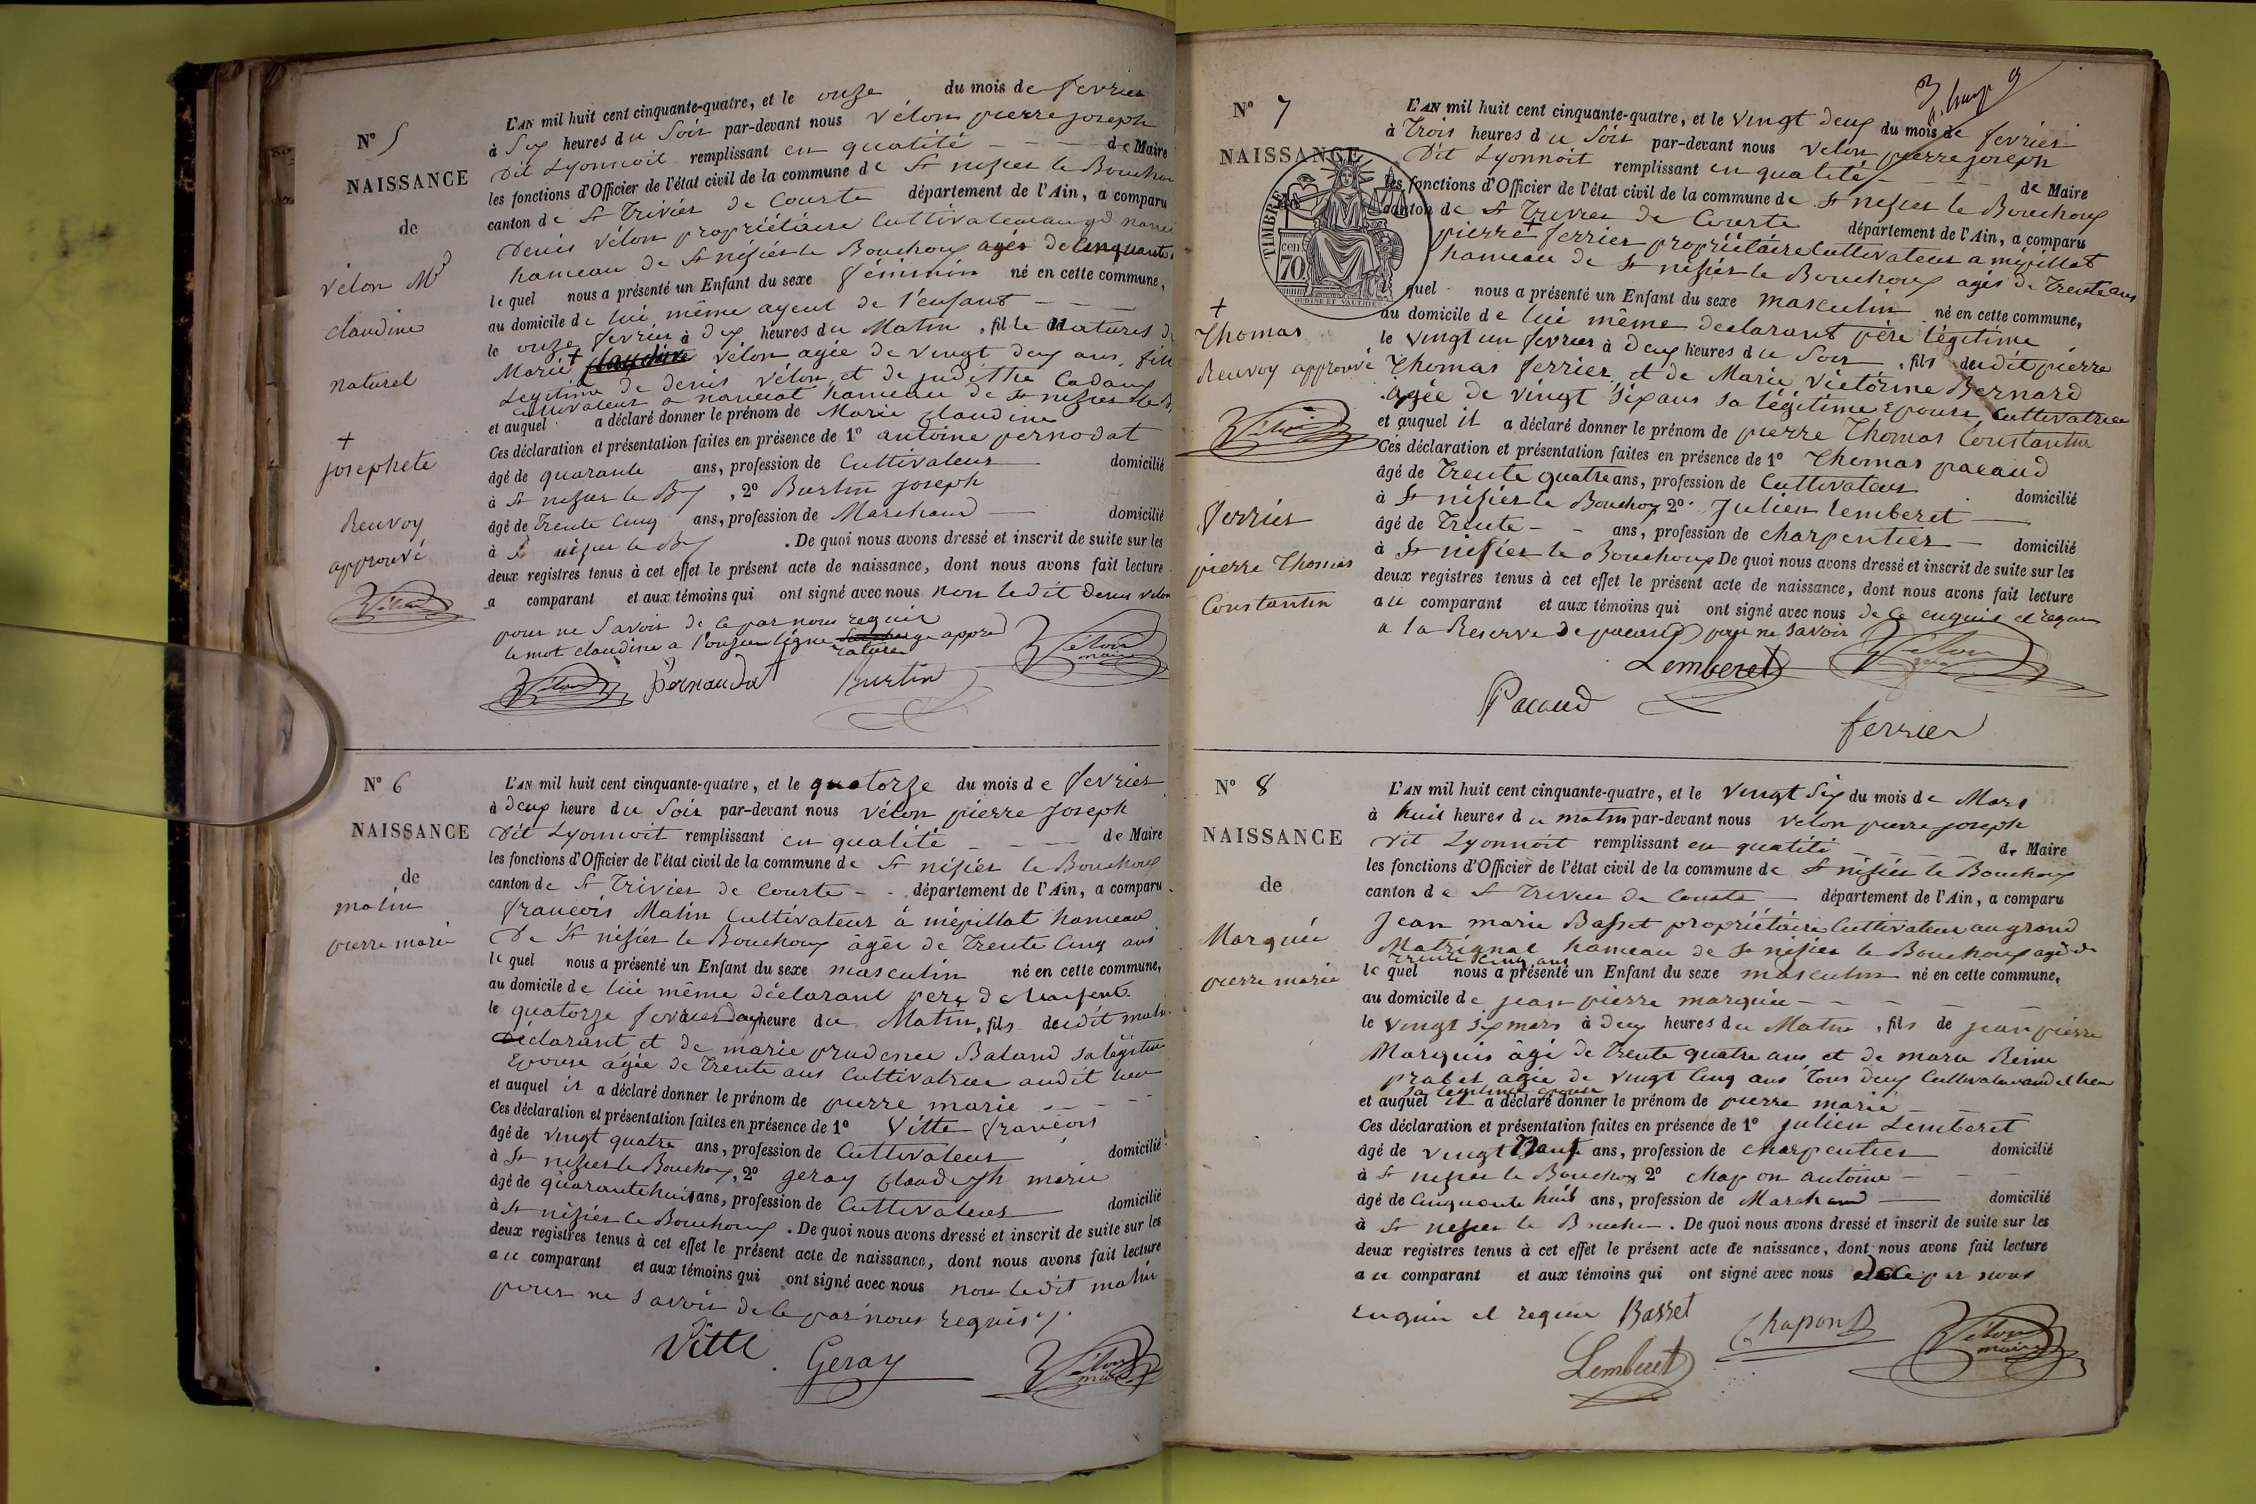 N° 5
NAISSANCE
de
vélon Md
claudine
naturel
+
josephete
Renvoy
approuvé
L'AN mil huit cent cinquante-quatre, et le onze du mois de fevrier
à Six heures du Soir par-devant nous vélon pierre joseph
dit Lyonnoit remplissant en qualité de Maire
les fonctions d'Officier de l'état civil de la commune de St nisier le Bouchou
canton de St Trivier de Courte département de l'Ain, a comparu
Denis vélon propriétaire Cultivateur au gd
hameau de St nisier le Bouchoux agés de Cinquante
le quel nous a présenté un Enfant du sexe féminin né en cette commune,
au domicile de lui même ayeul de l'enfant
le onze fevrier à deux heures du Matin, fille naturel de
Marie + claudine vélon agée de vingt deux ans, fille
Legitime de denis vélon et de judithe Cadoux
Cultivateur a hameau de St nisier le B
et auquel a déclaré donner le prénom de Marie claudine
Ces déclaration et présentation faites en présence de 1° antoine pernodat
âgé de quarante ans, profession de Cultivateur domicilié
à St nisier le Bx, 2° Burtin joseph
âgé de trente Cinq ans, profession de Marchand domicilié
à St nisier le Bx. De quoi nous avons dressé et inscrit de suite sur les
deux registres tenus à cet effet le présent acte de naissance, dont nous avons fait lecture
a comparant et aux témoins qui ont signé avec nous non ledit denis velon
pour ne Savoir de ce par nous requis
le mot claudine a l'onzieme ligne
rature
Vélon maire
Vélon pernaudat Burtin
N° 6
NAISSANCE
de
matin
pierre marie
L'AN mil huit cent cinquante-quatre, et le quatorze du mois de fevrier
à deux heure du Soir par-devant nous vélon pierre joseph
dit Lyonnoit remplissant en qualité de Maire
les fonctions d'Officier de l'état civil de la commune de St nisier le Bouchoux
canton de St Trivier de Courte département de l'Ain, a comparu
françois Matin Cultivateur à mépillat hameau
De St nisier le Bouchoux agée de trente Cinq ans
le quel nous a présenté un Enfant du sexe masculin né en cette commune,
au domicile de lui même déclarant pere de l'enfent
le quatorze fevrier deux heure du Matin, fils dudit matin
déclarant et de marie prudence Baland sa légitime
Epouse agée de trente ans Cultivatrice audit lieu
et auquel il a déclaré donner le prénom de pierre marie
Ces déclaration et présentation faites en présence de 1° Vitte françois
âgé de vingt quatre ans, profession de Cultivateur domicilié
à St nisier le Bouchoux, 2° geray claude marie
âgé de quarante huit ans, profession de Cultivateur domicilié
à St nisier le Bouchoux. De quoi nous avons dressé et inscrit de suite sur les
deux registres tenus à cet effet le présent acte de naissance, dont nous avons fait lecture
au comparant et aux témoins qui ont signé avec nous non ledit matin
pour ne savoir de ce par nous requis
Vitte
Geray
Vélon maire
N° 7
NAISSANCE
TIMBRE
cen 70
OUDINÉ ET VAUTHIER
+
Thomas
Renvoy approuvé
Vélon
ferrier
pierre Thomas
Constantin
L'AN mil huit cent cinquante-quatre, et le vingt deux du mois de fevrier
à Trois heures du Soir par-devant nous velon pierre joseph
dit Lyonnoit remplissant en qualité de Maire
les fonctions d'Officier de l'état civil de la commune de St nisier le Bouchoux
canton de St Trivier de Courte département de l'Ain, a comparu
pierre + ferrier propriétaire Cultivateur a mépillat
hameau de St nisier le Bouchoux agés de trente ans
quel nous a présenté un Enfant du sexe masculin né en cette commune,
au domicile de lui même declarant père légitime
le vingt un fevrier à deux heures du Soir, fils dudit pierre
Thomas ferrier et de Marie victorine Bernard
agée de vingt Six ans sa légitime Epouse Cultivatrice
et auquel il a déclaré donner le prénom de pierre Thomas Constantin
Ces déclaration et présentation faites en présence de 1° Thomas pacaud
âgé de trente quatre ans, profession de Cultivateur domicilié
à St nisier le Bouchoux 2° Julien Lemberet
âgé de trente ans, profession de charpentier domicilié
à St nisier le Bouchoux De quoi nous avons dressé et inscrit de suite sur les
deux registres tenus à cet effet le présent acte de naissance, dont nous avons fait lecture
au comparant et aux témoins qui ont signé avec nous de ce enquis et requis
a la Reserve de pacaud pour ne savoir
Lemberet Vélon
Pacaud
ferrier
N° 8
NAISSANCE
de
Marquis
pierre marie
L'AN mil huit cent cinquante-quatre, et le vingt Six du mois de Mars
à huit heures du matin par-devant nous velon pierre joseph
dit Lyonnoit remplissant en qualité de Maire
les fonctions d'Officier de l'état civil de la commune de St nisier le Bouchoux
canton de St Trivier de Courte département de l'Ain, a comparu
Jean marie Basset propriétaire Cultivateur au grand
Matrignat hameau de St nisier le Bouchoux agé de
trente cinq ans
le quel nous a présenté un Enfant du sexe masculin né en cette commune,
au domicile de jean pierre marquis
le vingt six mars à deux heures du Matin, fils de jean pierre
Marquis âgé de trente quatre ans et de marie Reine
probet agée de vingt Cinq ans Tous deux Cultivateur audit lieu
sa legitime épouse
et auquel il a déclaré donner le prénom de pierre marie
Ces déclaration et présentation faites en présence de 1° julien Lemberet
âgé de vingt neuf ans, profession de charpentier domicilié
à St nisier le Bouchoux 2° chapon antoine
âgé de Cinquante huit ans, profession de Marchand domicilié
à St nisier le Bouchou. De quoi nous avons dressé et inscrit de suite sur les
deux registres tenus à cet effet le présent acte de naissance, dont nous avons fait lecture
au comparant et aux témoins qui ont signé avec nous de ce par nous
enquis et requis Basset
Chapon
Lemberet
Vélon maire